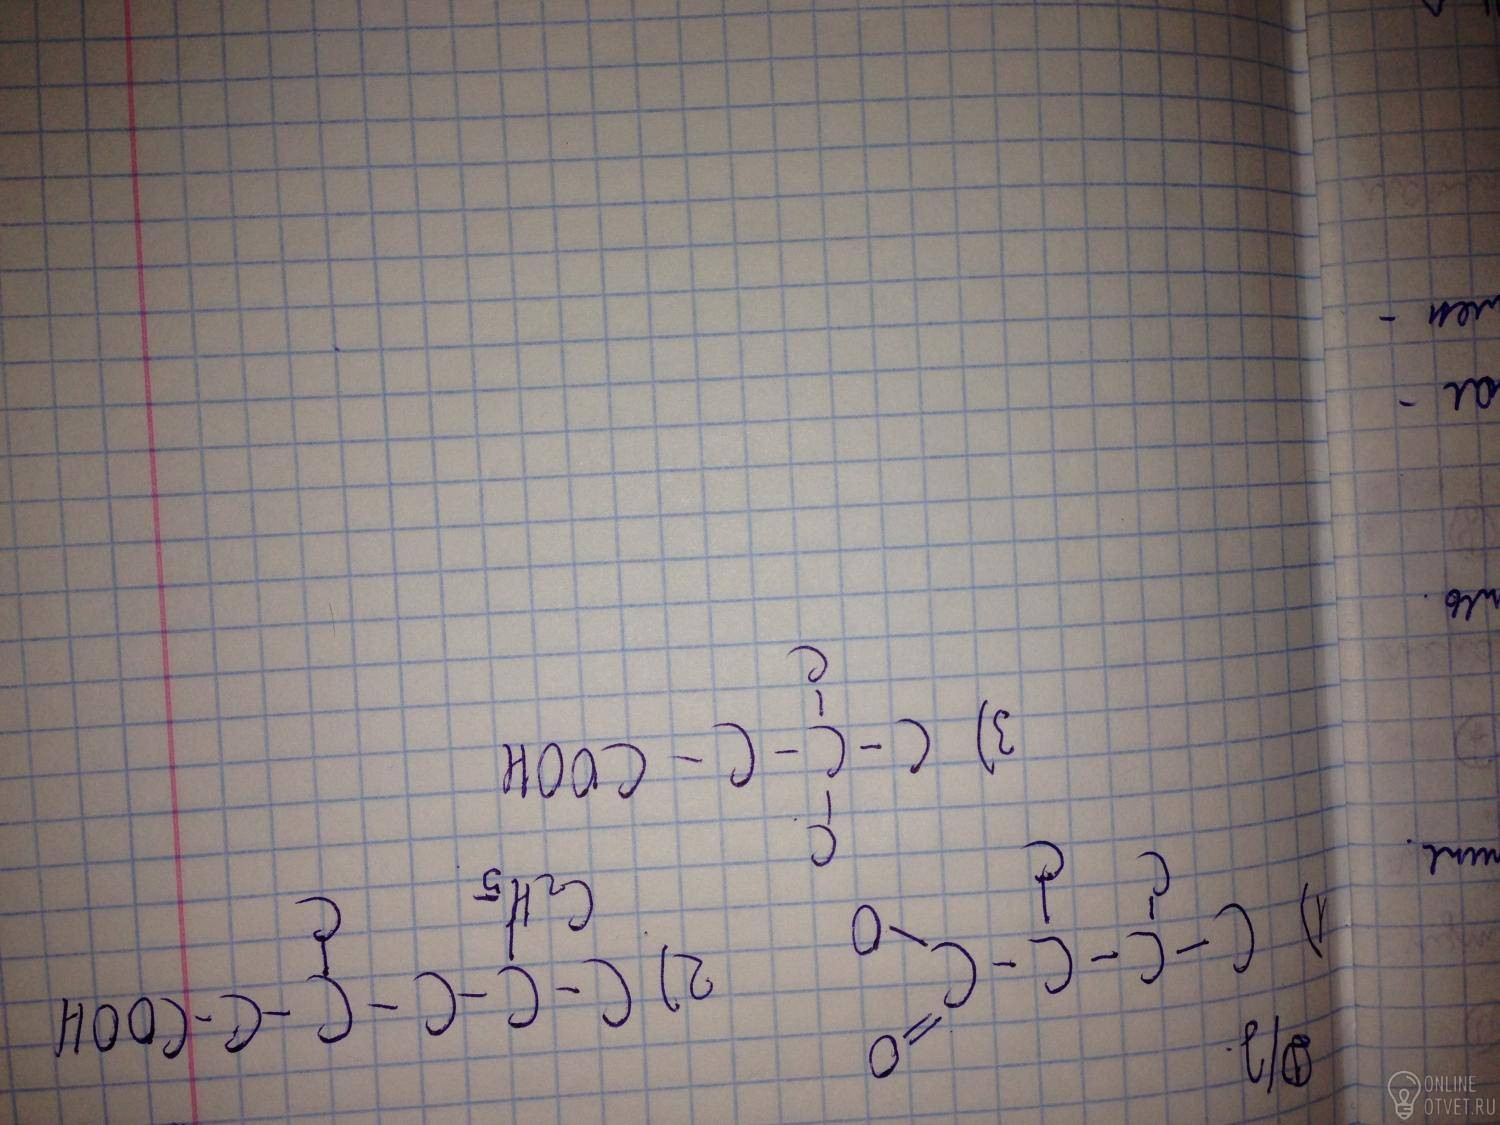 Д/з.
O
1) C - C - C - C
O
C C
2) C - C - C - C - C - COOH
C₂H₅ C
C
3) C - C - C - COOH
C
ONLINE
OTVET.RU